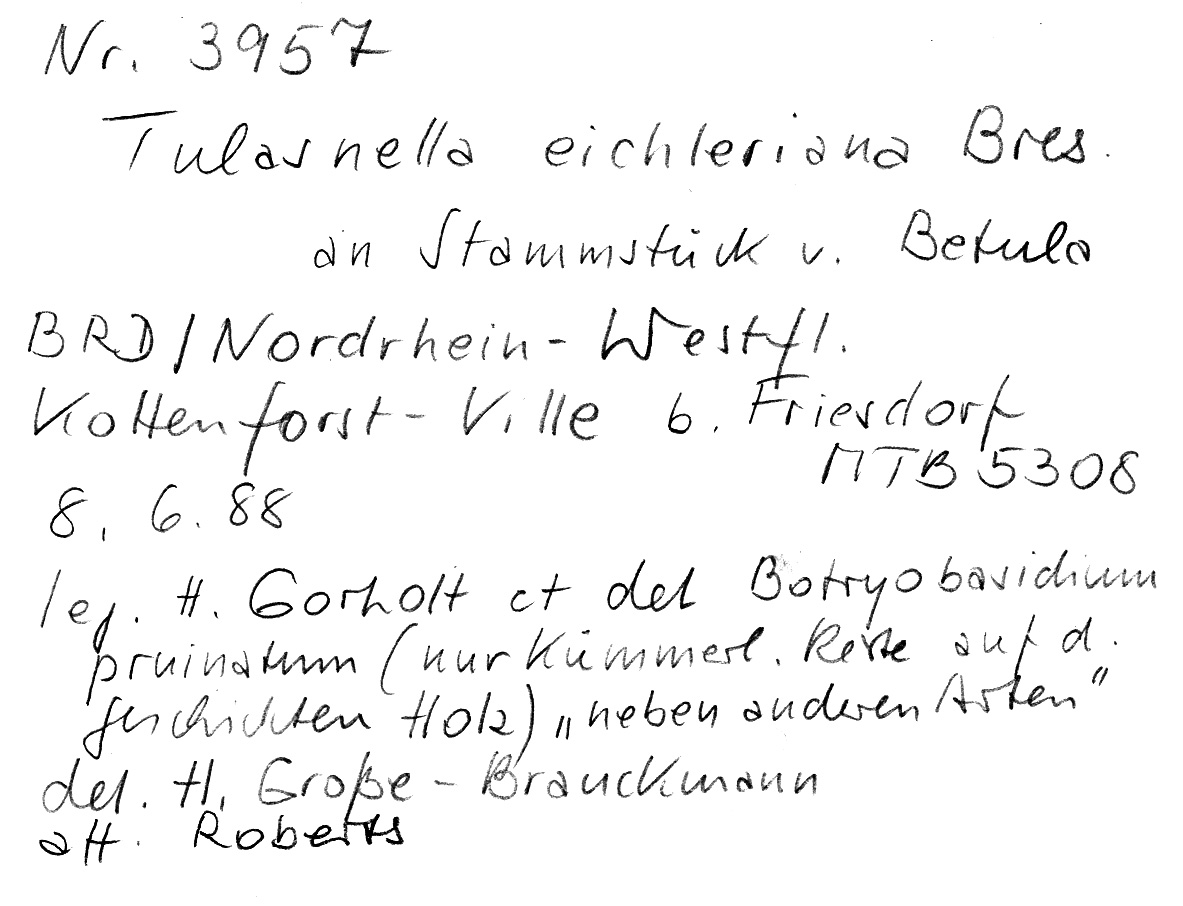 Nr. 3957
Tulasnella eichleriana Bres.
an Stammstück v. Betula
BRD/Nordrhein-Westfl.
Kottenforst-Ville b. Friesdorf
MTB 5308
8. 6. 88
leg. H. Gorholt et det Botryobasidium
pruinatum (nur Kümmerl. Reste auf d.
geschickten Holz) „neben anderen Arten"
det. H. Große-Brauckmann
att. Roberts